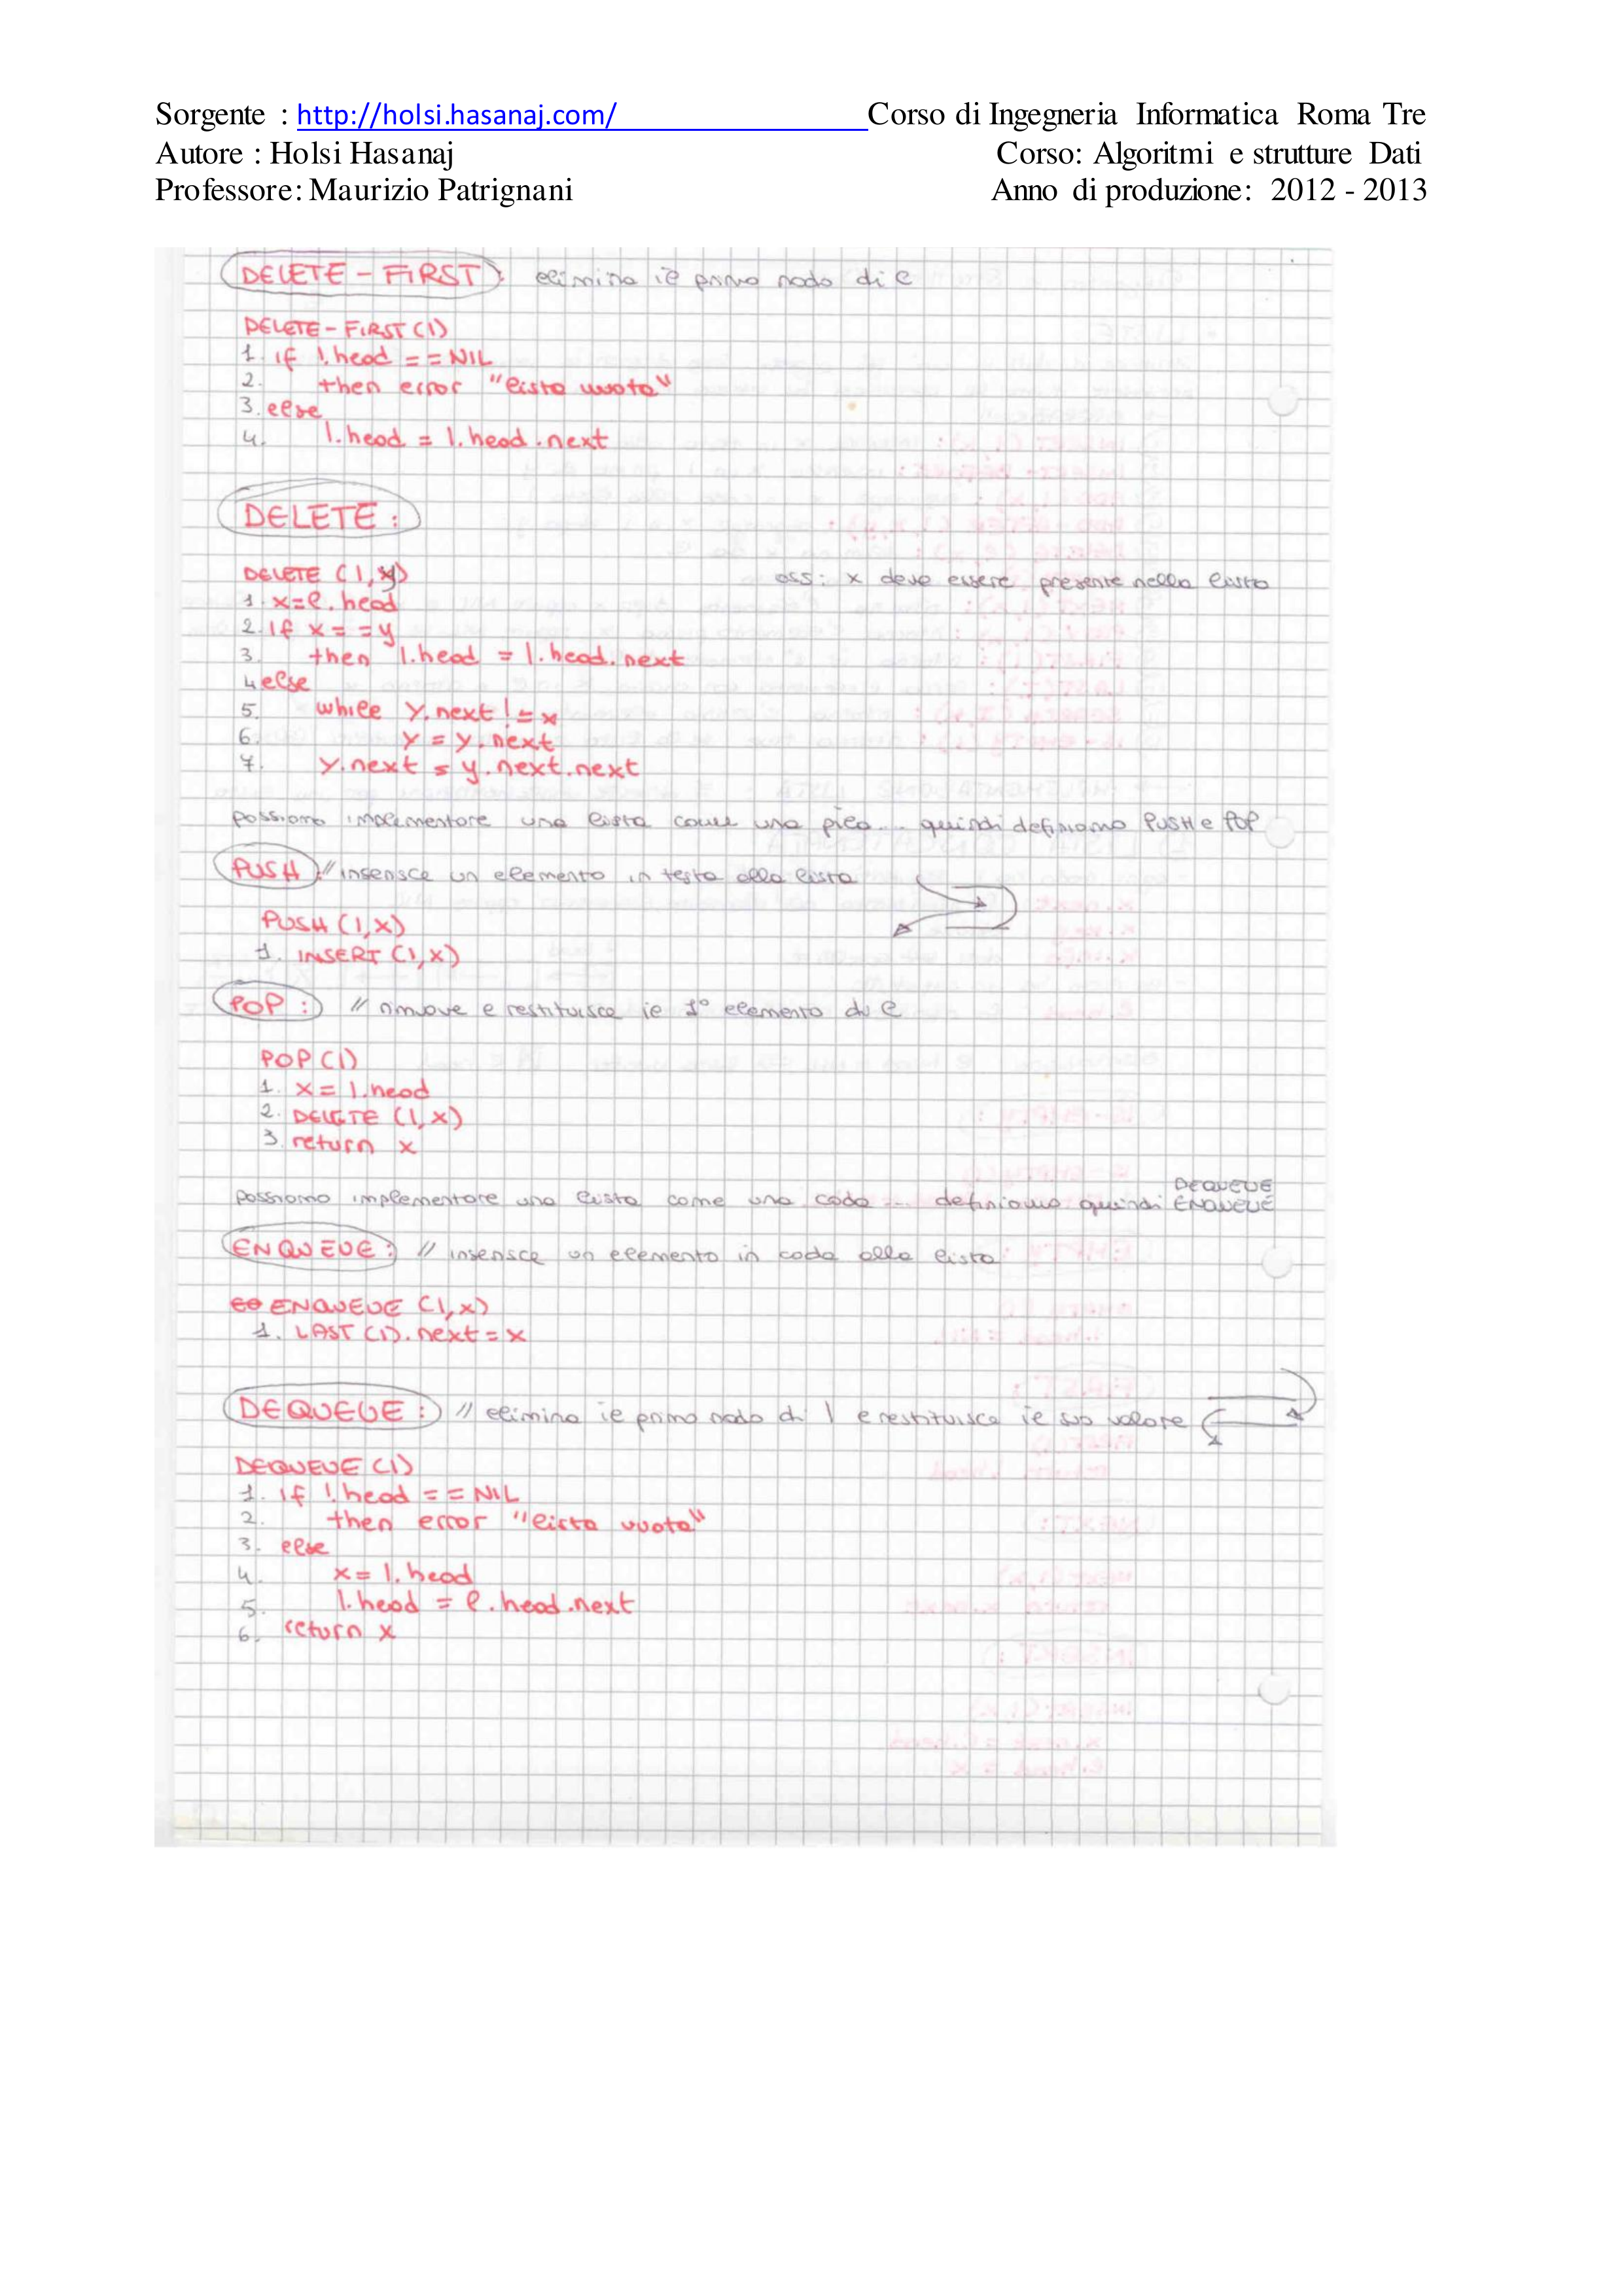 Sorgente : http://holsi.hasanaj.com/ Corso di Ingegneria Informatica Roma Tre
Autore : Holsi Hasanaj Corso: Algoritmi e strutture Dati
Professore: Maurizio Patrignani Anno di produzione: 2012 - 2013
DELETE - FIRST : elimina il primo nodo di l
DELETE - FIRST (l)
1. if l.head == NIL
2. then error "lista vuota"
3. else
4. l.head = l.head.next
DELETE :
DELETE (l, y) oss: x deve essere presente nella lista
1. x=l.head
2. if x == y
3. then l.head = l.head.next
4 else
5. while y.next != x
6. y = y.next
7. y.next = y.next.next
possiamo implementare una lista come una pila... quindi definiamo PUSH e POP
PUSH // inserisce un elemento in testa alla lista
PUSH (l,x)
1. INSERT (l,x)
POP : // rimuove e restituisce il 1° elemento di l
POP (l)
1. x = l.head
2. DELETE (l,x)
3. return x
possiamo implementare una lista come una coda ... definiamo quindi DEQUEUE ENQUEUE
ENQUEUE : // inserisce un elemento in coda alla lista
ENQUEUE (l,x)
1. LAST (l).next = x
DEQUEUE : // elimina il primo nodo di l e restituisce il suo valore
DEQUEUE (l)
1. if l.head == NIL
2. then error "lista vuota"
3. else
4. x = l.head
5. l.head = l.head.next
6. return x